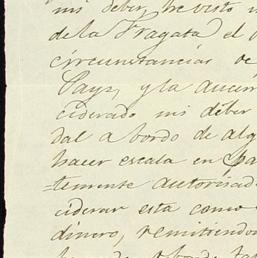 mi deber, he visto
de la Fragata el
circunstancias
Pays, y la
ciderado mi deber
dal a bordo de alg
hacer escala en
=temente autorizad
ciderar esta como
dinero, remitiendo